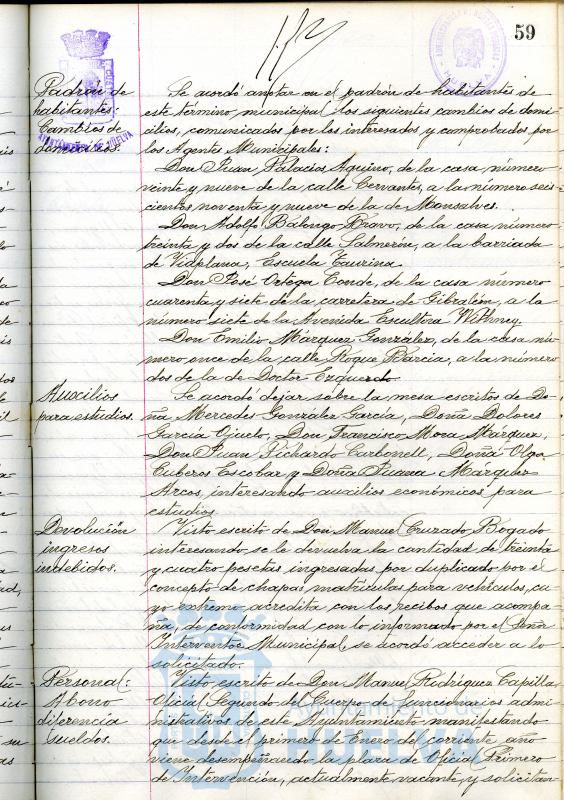 59
Padrón de
habitantes:
Cambios de
domicilios.
Se acordó anotar en el padrón de habitantes de
este término municipal los siguientes cambios de domi-
cilios, comunicados por los interesados y comprobados por
los Agentes Municipales:
Don Juan Palacios Aquino, de la casa número
veinte y nueve de la calle Cervantes, a la número seis-
cientos noventa y nueve de la de Monsalves.
Don Adolfo Bálongo Bravo, de la casa número
treinta y dos de la calle Salmerón, a la barriada
de Viaplana, Escuela Taurina.
Don José Ortega Conde, de la casa número
cuarenta y siete de la carretera de Gibraleón, a la
número siete de la Avenida Escultora Wöthney.
Don Emilio Márquez González, de la casa nú-
mero once de la calle Roque Barcia, a la número
dos de la de Doctor Ezquerdo.
Auxilios
para estudios.
Se acordó dejar sobre la mesa escritos de Do-
ña Mercedes González García, Doña Dolores
García Ojuelo, Don Francisco Mora Márquez,
Don Juan Pichardo Carbonell, Doña Olga
Cuberos Escobar y Doña Juana Márquez
Arcos, interesando auxilios económicos para
estudios.
Devolución
ingresos
indebidos.
Visto escrito de Don Manuel Cruzado Bogado
interesando, se le devuelva la cantidad de treinta
y cuatro pesetas ingresadas por duplicado por el
concepto de chapas matrículas para vehículos, cu-
yo extremo acredita con los recibos que acompa-
ña, de conformidad con lo informado por el Señor
Interventor Municipal, se acordó acceder a lo
solicitado.
Personal:
Abono
diferencia
sueldos.
Visto escrito de Don Manuel Rodríguez Capilla
Oficial Segundo del Cuerpo de funcionarios admi-
nistrativos de este Ayuntamiento manifestando
que desde el primero de Enero del corriente año
viene desempeñando la plaza de Oficial Primero
de Intervención, actualmente vacante, y solicitan
AYUNTAMIENTO DE HUELVA
Ayuntamiento de
HUELVA